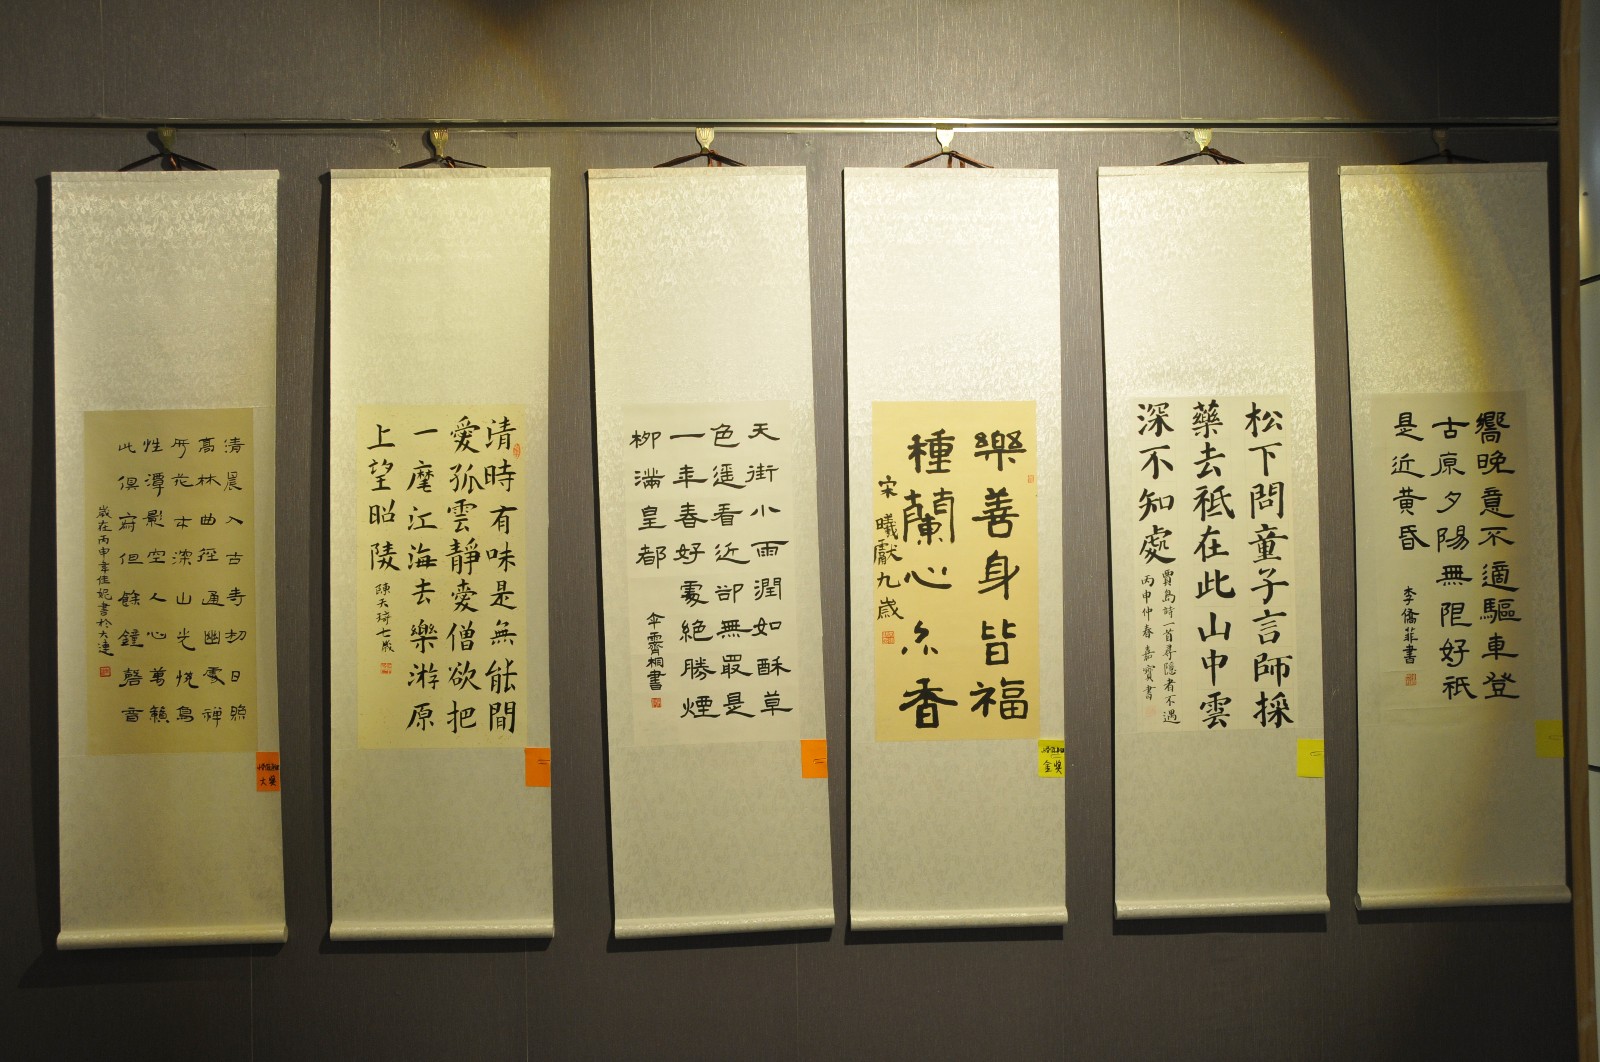 清晨入古寺初日照
高林曲徑通幽處禪
房花木深山光悅鳥
性潭影空人心萬籟
此俱寂但餘鐘磬音
歲在丙申韋佳妮書於大連
大獎
清時有味是無能閒
愛孤雲靜愛僧欲把
一麾江海去樂游原
上望昭陵
陳天琦七歲
天街小雨潤如酥草
色遥看近卻無最是
一年春好處絕勝煙
柳滿皇都
霽桐書
二
樂善身皆福
種蘭心亦香
宋曦獻九歲
金獎
松下問童子言師採
藥去祗在此山中雲
深不知處
賈島詩一首尋隱者不遇
丙申仲春嘉賓書
嚮晚意不適驅車登
古原夕陽無限好祇
是近黃昏
李僑菲書